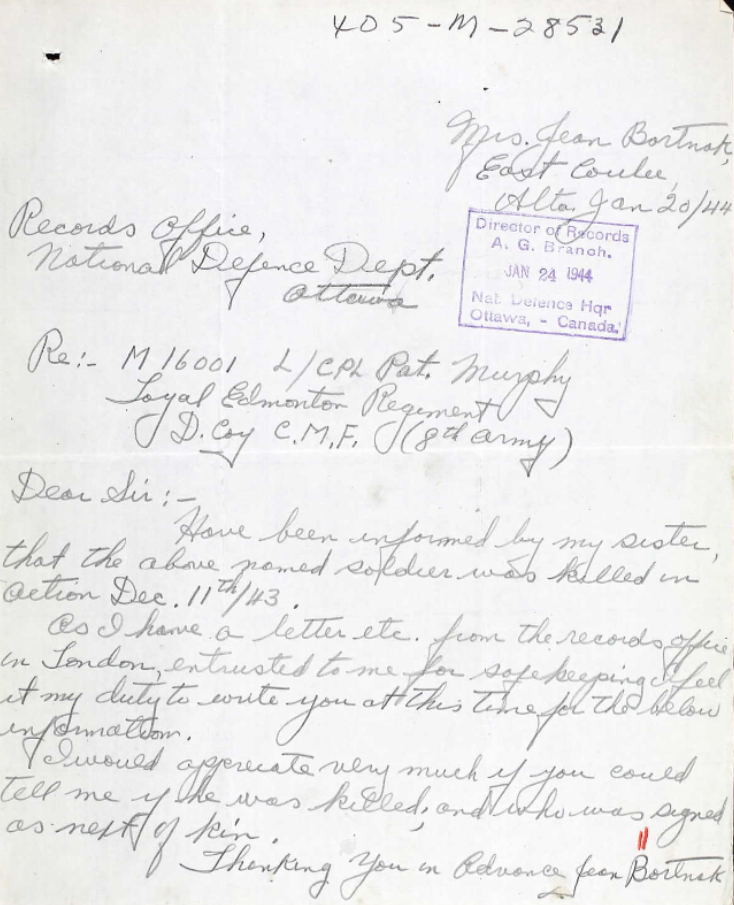 405-M-28531
Mrs. Jean Bortnak,
East Coulee,
Alta. Jan 20/44
Records Office,
National Defence Dept.
Ottawa
Director of Records
A. G. Branch.
JAN 24 1944
Nat. Defence Hqr
Ottawa, - Canada.
Re:- M16001 L/CPL Pat. Murphy
Loyal Edmonton Regiment
D. Coy C.M.F. (8th Army)
Dear Sir:-
Have been informed by my sister,
that the above named soldier was killed in
action Dec. 11th/43.
As I have a letter etc. from the records office
in London, entrusted to me for safekeeping I feel
it my duty to write you at this time for the below
information.
I would appreciate very much if you could
tell me if he was killed, and who was signed
as next of kin.
Thanking You in Advance Jean Bortnak